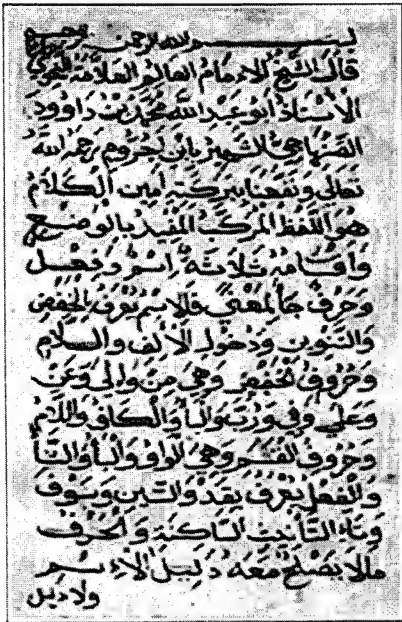 بسم الله الرحمن الرحيم
قال الشيخ الامام العالم العلامة النحوي
الأستاذ أبو عبد الله محمد بن داوود
الصنهاجي الشهير بابن اجروم رحمه الله
تعالى ونفعنا ببركته امين الكلام
هو اللفظ المركب المفيد بالوضع
وأقسامه ثلاثة اسم وفعل
وحرف جاء لمعنى فالاسم يعرف بالخفض
والتنوين ودخول الألف واللام
وحروف الخفض وهي من وإلى وعن
وعلى وفي ورب والباء والكاف واللام
وحروف القسم وهي الواو والباء والتاء
والفعل يعرف بقد والسين وسوف
وتاء التأنيث الساكنة والحرف
ما لا يصلح معه دليل الاسم
ولا دليل